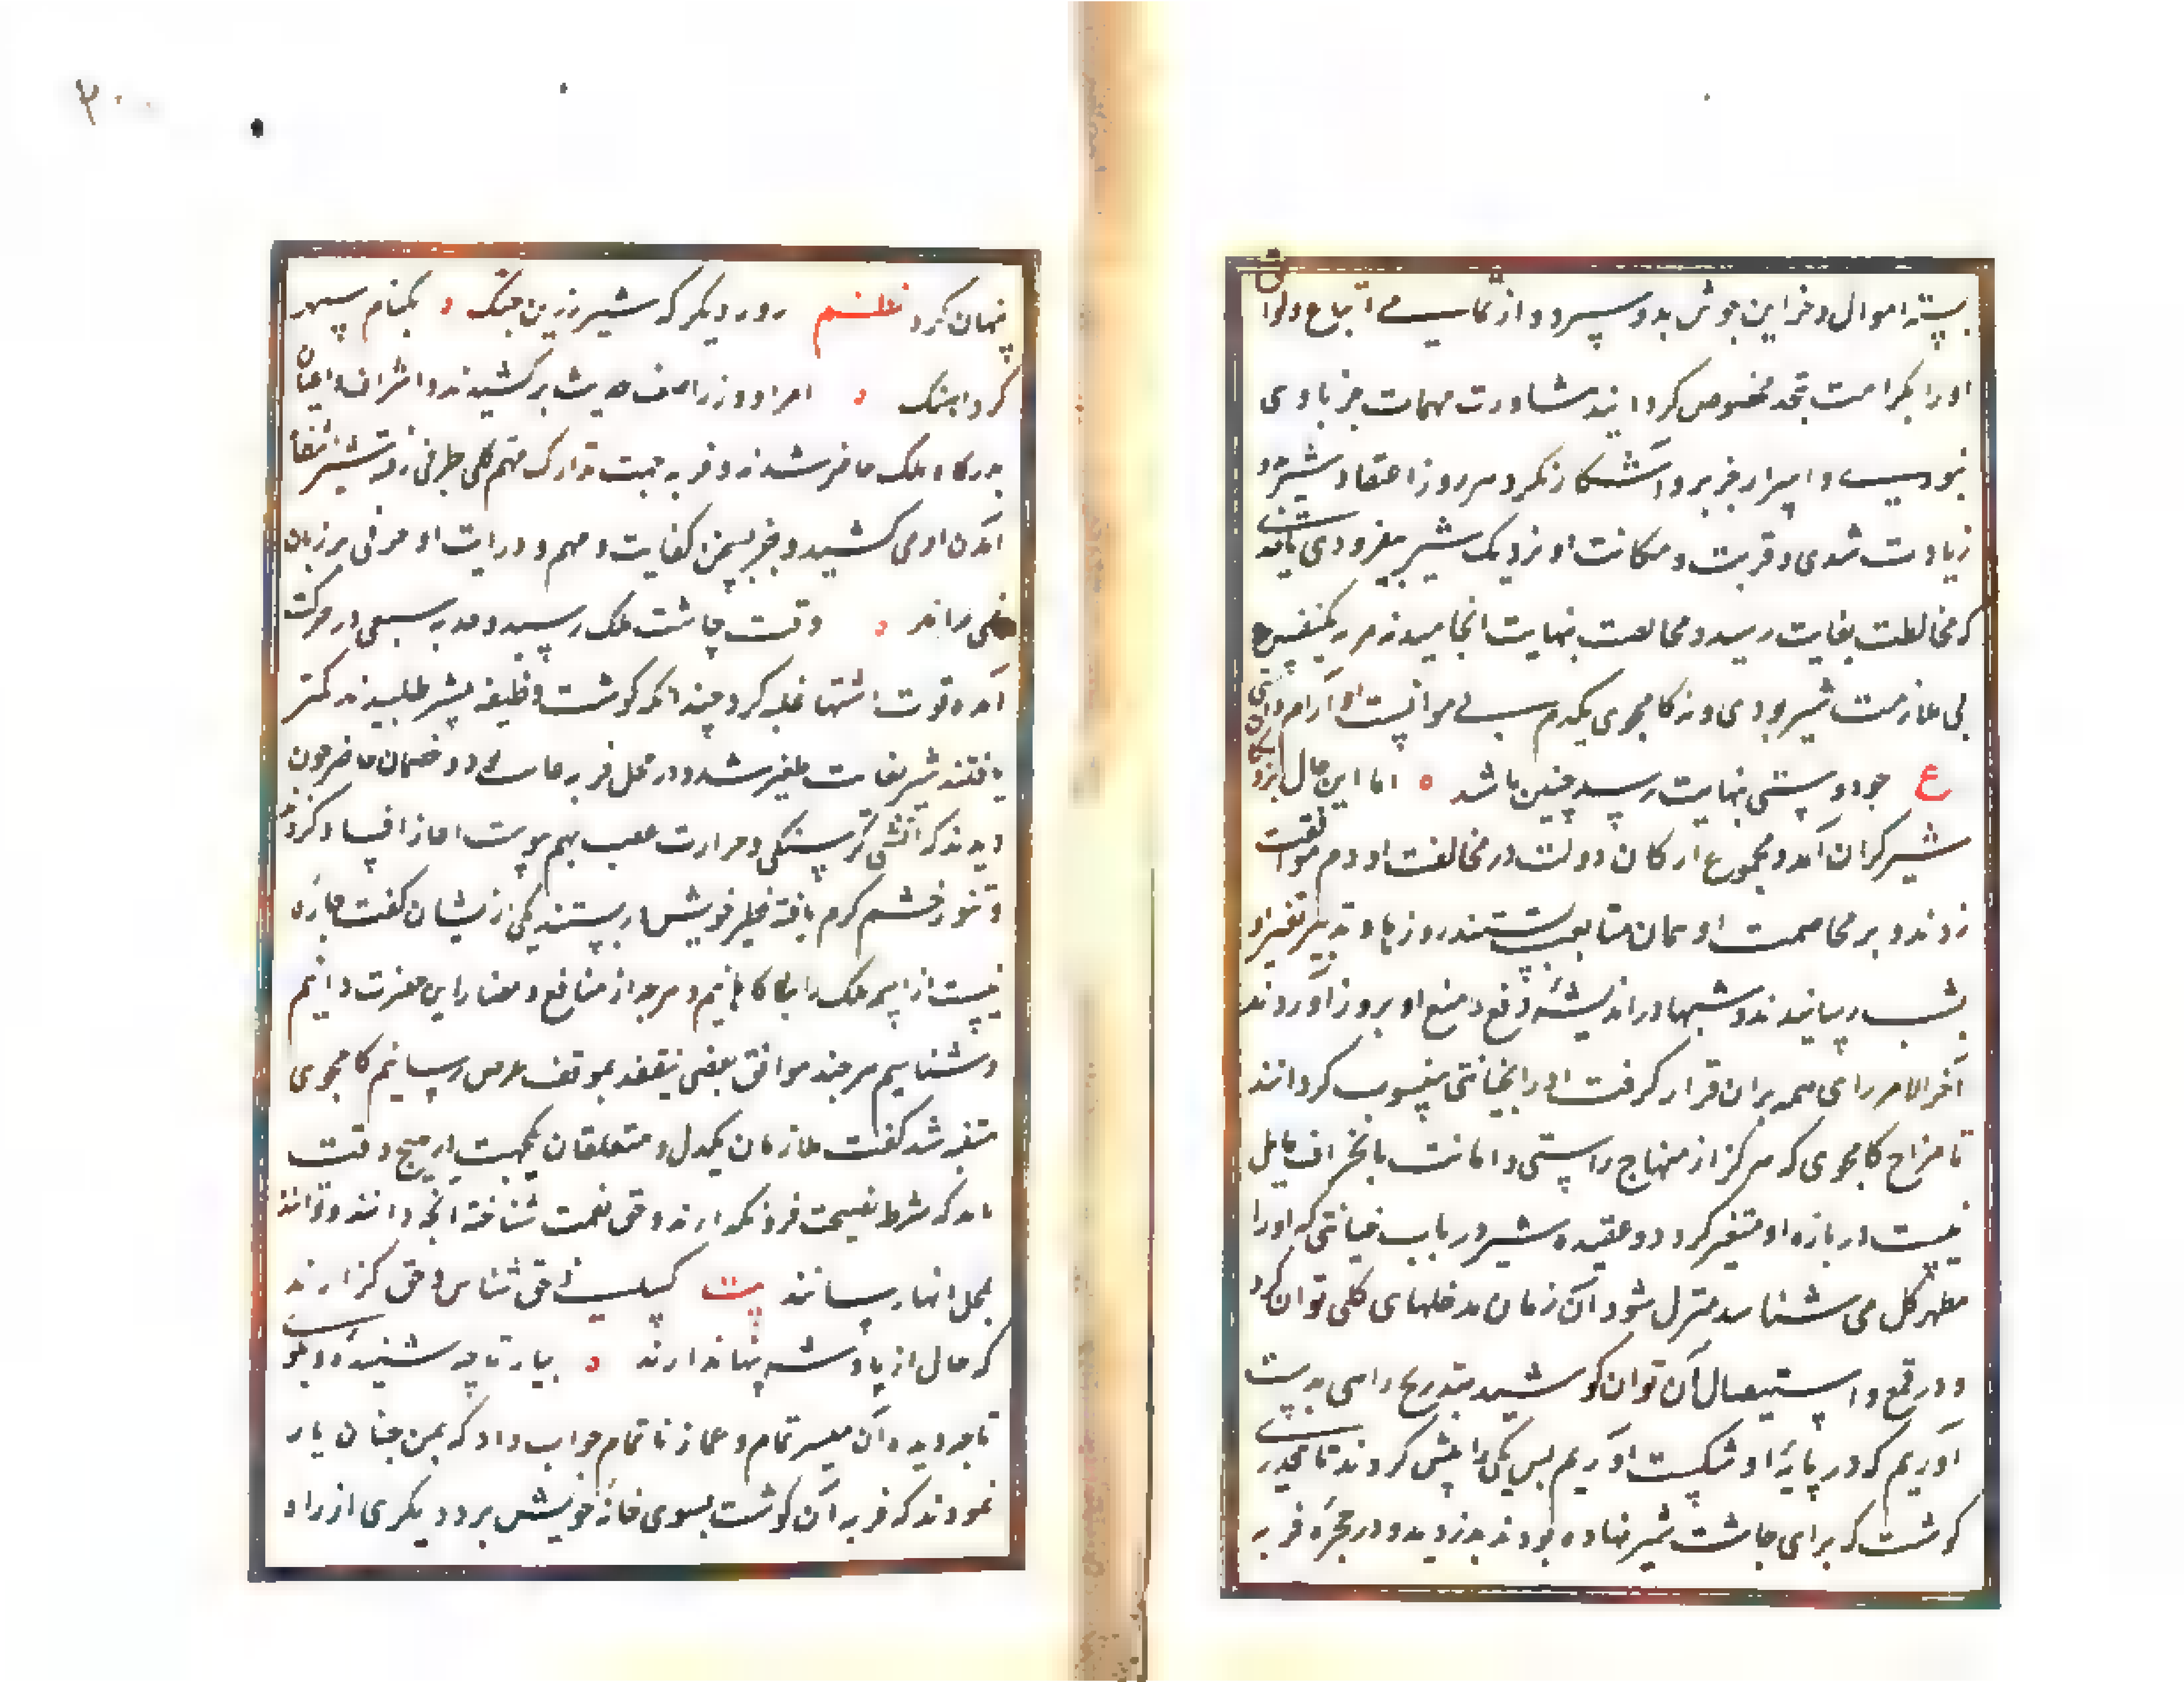 بسته اموال و خزاین جوش بدو سپرد و از تمامی اتباع و لوا
او را بکرامت تجد مخصوص کردانید مشاورت مهمات جز با وی
نبودی و اسرار جز برو آشکارا نکرد هر روز اعتقاد شیر درو
زیادت شدی و قربت و مکانت او نزدیک شیر بیفزودی تا بحدی
که مخالطت بغایت رسید و مخالصت بنهایت انجامید نه فریه یکنفس
بی ملازمت شیر بودی و نه کامجوی یکدم بی موانست او آرام داشتی
ع چو دوستی بنهایت رسید چنین باشد اما این حال بر نزدیکان
شیر کران آمد و مجموع ارکان دولت در مخالفت او دم موافقت
زدند و بر مخاصمت او پیمان متابعت بستند روزها در تدبیر تغیر او
بشب رسانیدند و شبها در اندیشه دفع و منع او بروز آوردند
آخر الامر رای همه بران قرار کرفت او را بخیانتی منسوب کردانند
تا مزاج کامجوی که هرکز از منهاج راستی و امانت بانحراف مایل
نیست در باره او متغیر کردد و عقیده شیر در باب خیانتی که او را
مظهر کل می شناسد متزلزل شود آن زمان مدخلهای کلی توان کرد
و در قمع و استیصال آن توان کوشید بتدریج راهی بدست
آوریم که در پایه او شکست آوریم پس یکی را پیش کردند تا قدری
کوشت که برای چاشت شیر نهاده بودند بدزدید و در حجره فریه
۳۰۰
پنهان کرد نظم روز دیکر که شیر زرین جنک بکنام سپهر
کرد آهنک امرا و وزرا صف هیبت برکشیدند و اشراف و اعیان
درکاه ملک حاضر شدند و فریه جهت تدارک مهم کلی بطرفی رفته شیر انتظار
آمدن او می کشید و جز سخن کفایت و فهم و درایت او حرفی بر زبان
نمی راند وقت چاشت ملک رسید و معده سبعی در حرکت
آمده قوت اشتها غلبه کرد چندانکه کوشت وظیفه شیر طلبیدند کمتر
یافتند شیر بغایت متغیر شد و در محل فریه غایب و خصمان حاضر چون
دیدند که آتش کرسنکی و حرارت غضب بهم پیوست آغاز افساد کردند
و تنور خشم کرم یافته فطیر خویش در بستند یکی از ایشان کفت چاره
نیست از آنکه ملک را بیاکاهانیم و هرچه از منافع و مضار این حضرت دانیم
و شناسیم هرچند موافق بعضی نیفتد بموقف عرض رسانیم کامجوی
متنبه شد کفت ملازمان یکدل و متعلقان یکجهت باید که هیچ وقت
باید که شرط نصیحت فرو نکذارند و حق نعمت شناخته آنچه دانند و توانند
بمحل انها رسانند بیت کسانی حق شناس و حق کزارند
که حال از پادشه پنهان ندارند بیار تا چه شنیده و بکو
تا چه دیده آن میسر تمام و غماز ناتمام جواب داد که بمن چنان باز
نمودند که فریه آن کوشت بسوی خانه خویش برد و دیکری از راه